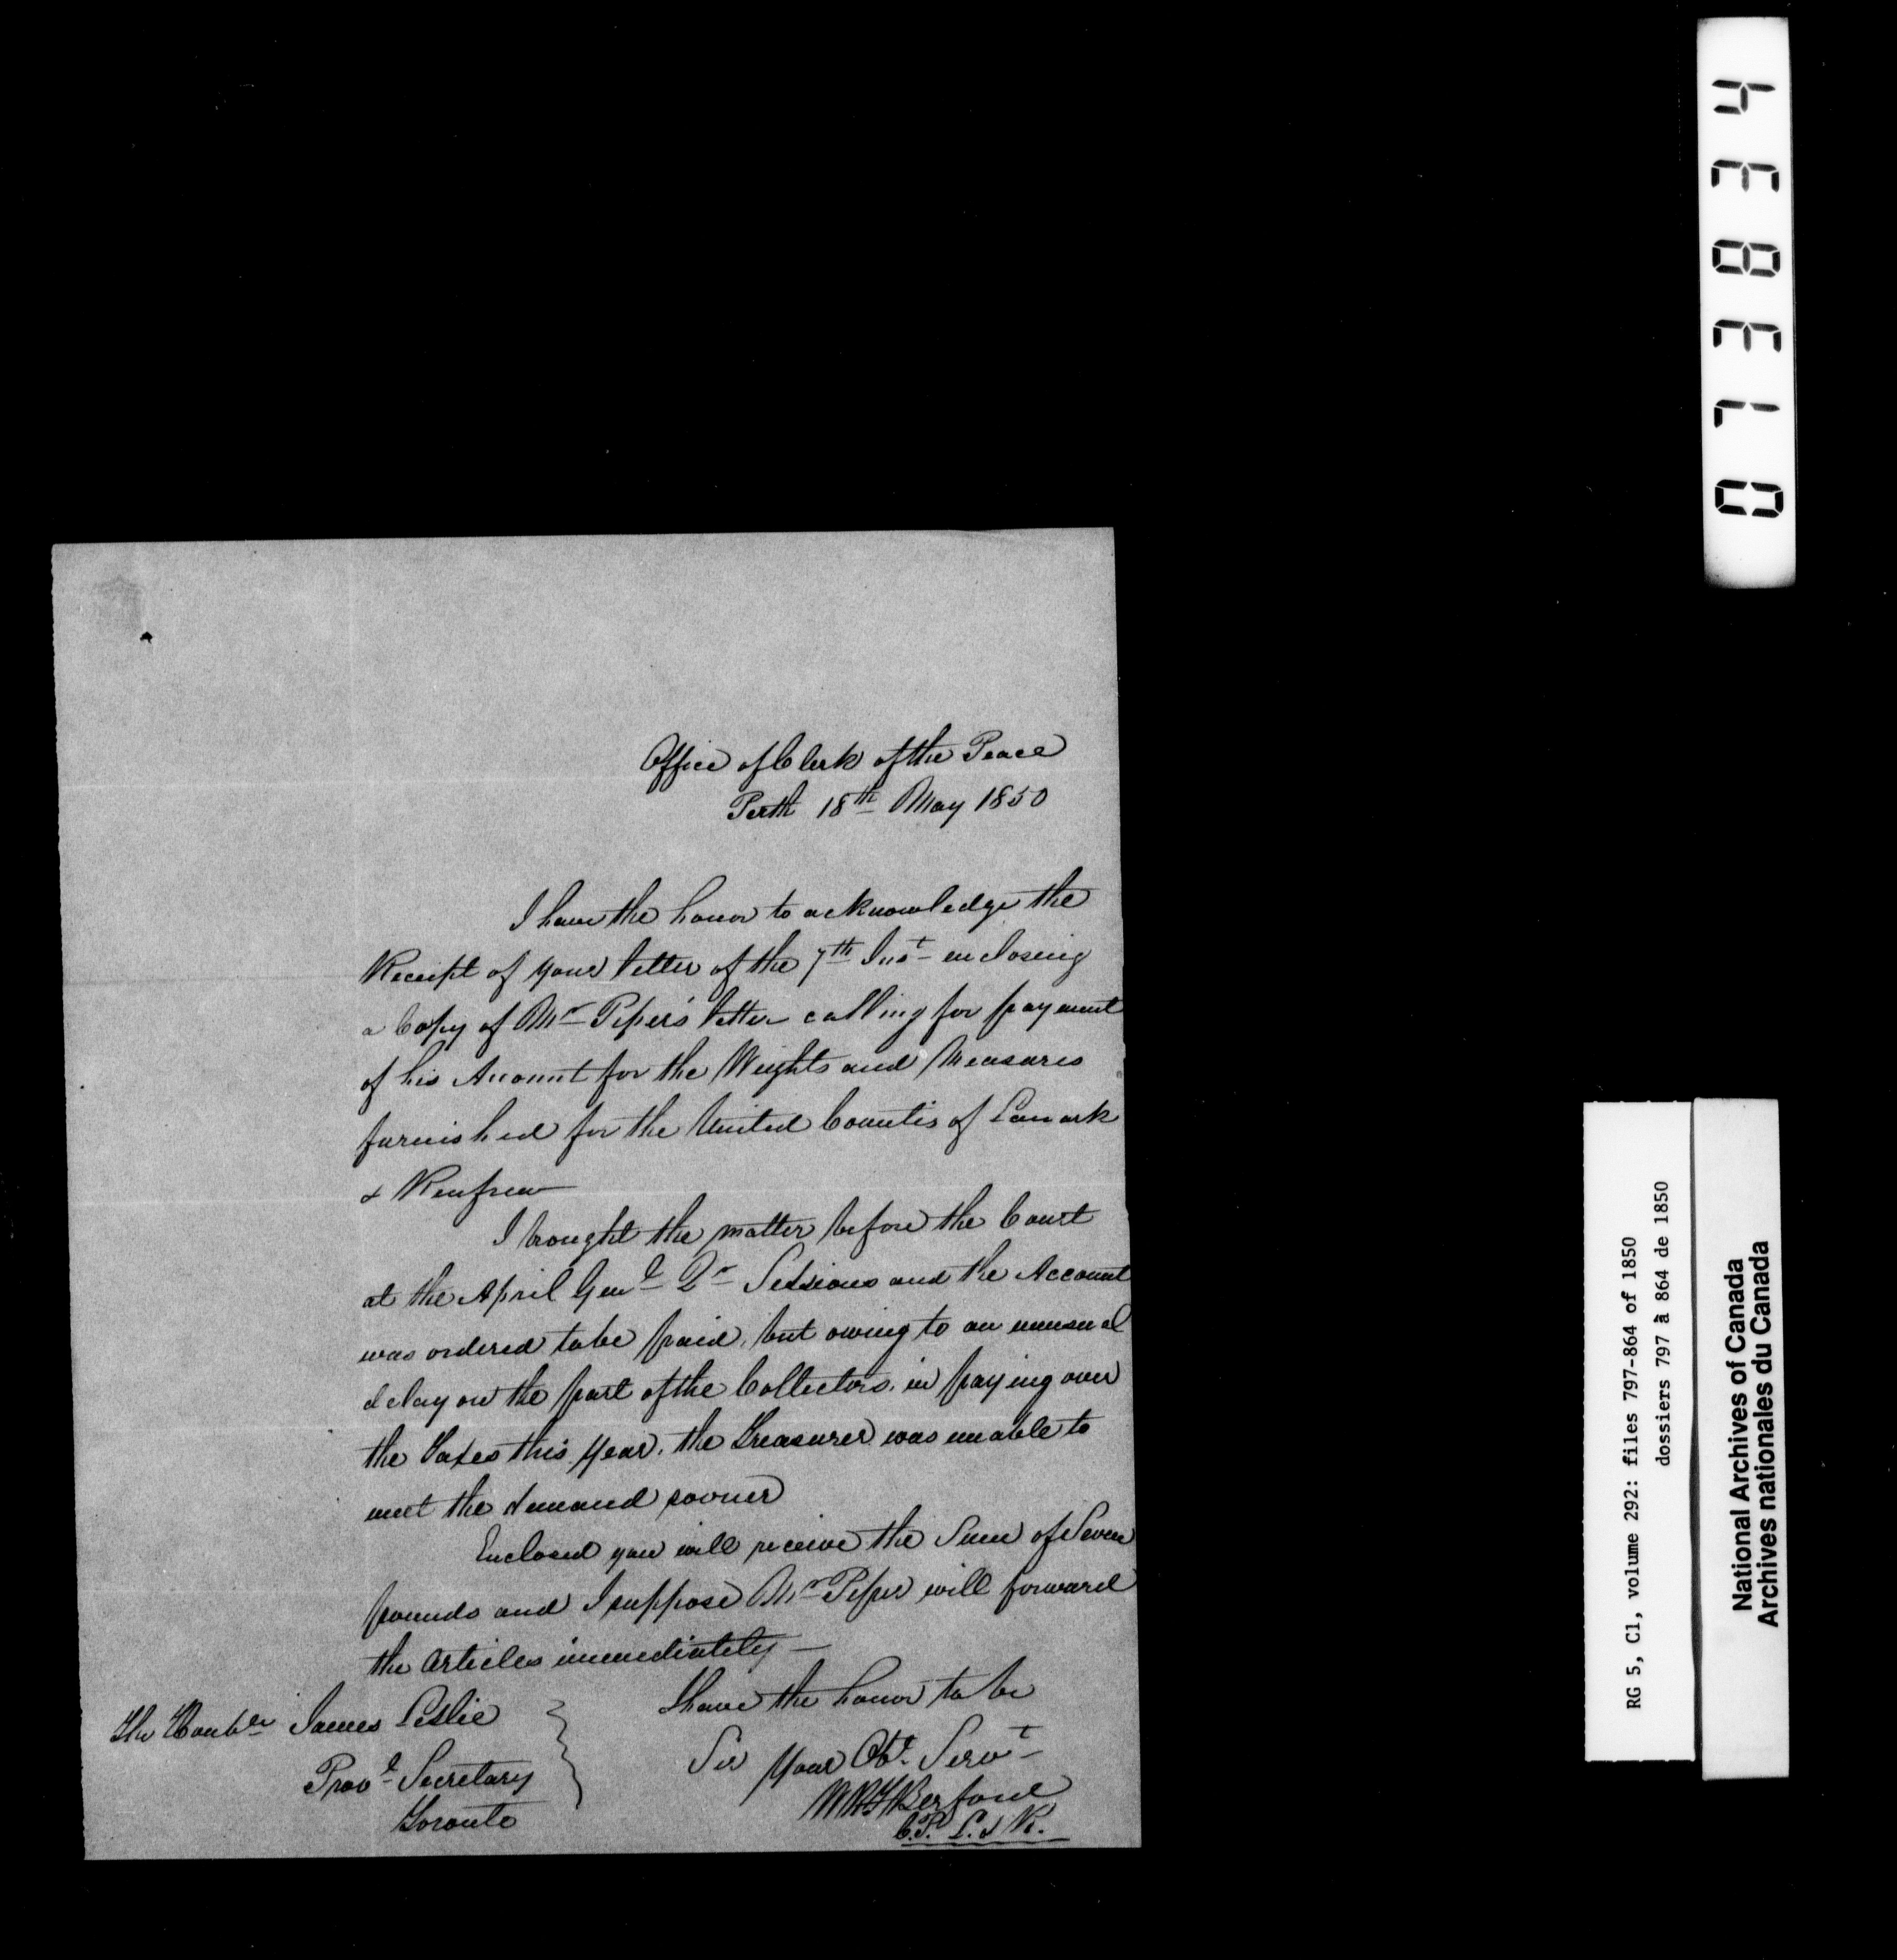 Office of Clerk of the Peace
Perth 18th May 1850
I have the honor to acknowledge the
Receipt of your letter of the 7th Inst enclosing
a Copy of Mr Piper's letter calling for payment
of his Account for the Weights and Measures
furnished for the United Counties of Lanark
& Renfrew
I brought the matter before the Court
at the April Genl Qr Sessions and the Account
was ordered to be paid, but owing to an unusual
delay on the part of the Collectors, in paying over
the Taxes this year, the Treasurer was unable to
meet the demand sooner
Enclosed you will receive the Sum of Seven
pounds and I suppose Mr Piper will forward
the Articles immediately —
I have the honor to be
Sir Your Obt Servt
WRF Berford
C.P. L. & R.
The Honble James Leslie
Provl Secretary
Toronto
073834
RG 5, C1, volume 292: files 797-864 of 1850
dossiers 797 à 864 de 1850
National Archives of Canada
Archives nationales du Canada